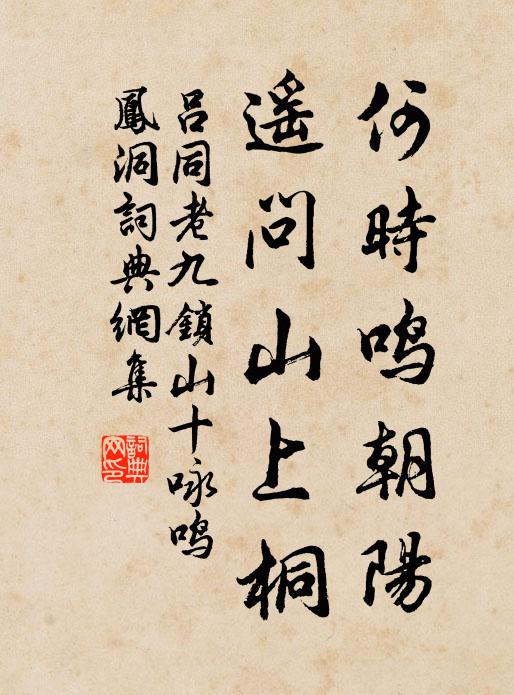 何時鳴朝陽
遥問山上桐
吕同老九鎖山十咏鳴
鳳洞詞典網集
詞典
网印